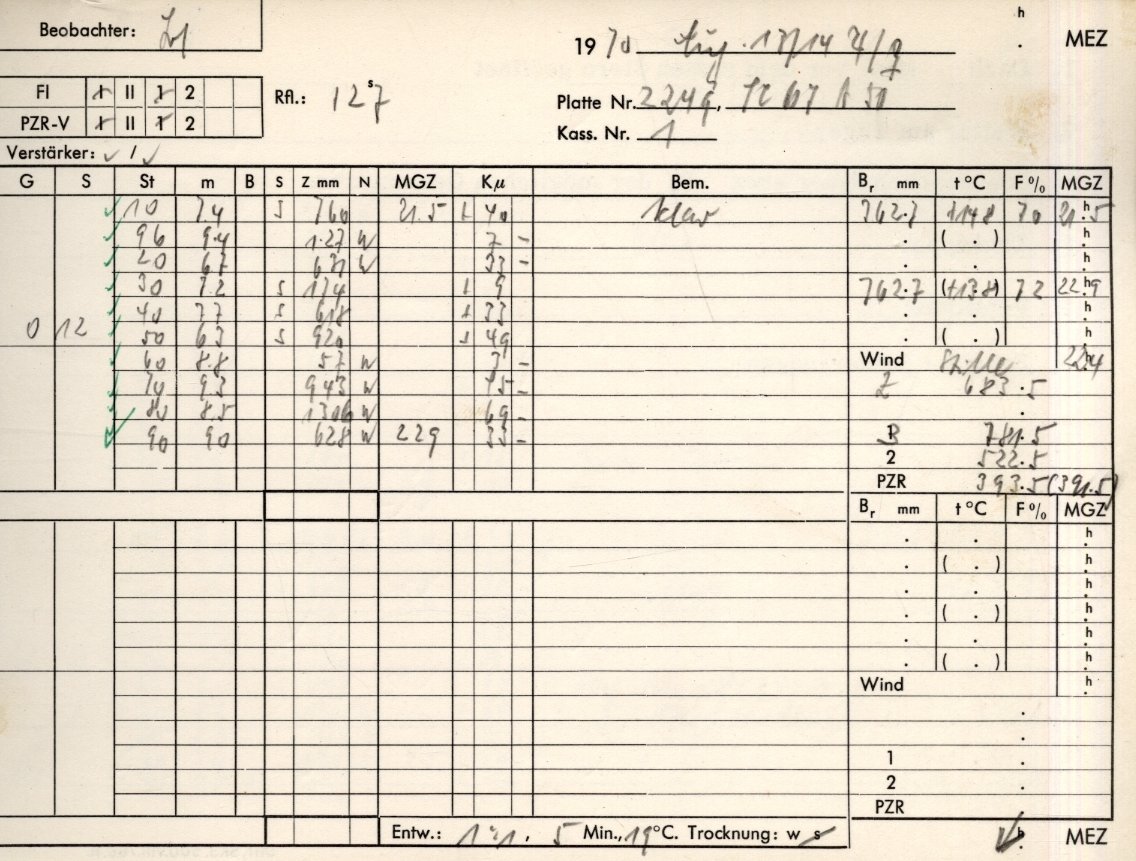 h
Beobachter:
19 70 Aug. 13/14 . MEZ
FI I II 1 2 Rfl.: 12 s 7
Platte Nr. 2249,
PZR-V I II 1 2
Kass. Nr. 1
Verstärker: ✓ / ✓
G S St m B S Z mm N MGZ Kμ Bem. Br mm t °C F % MGZ
✓ 10 7.4 S 760 21.5 + 40 klar 762.7 +14.8 70 21.h5
✓ 96 9.4 1.27 W 7 – . ( . ) h
✓ 20 6.7 631 W 33 – . . h
✓ 30 7.2 S 174 + 9 762.7 (+13.8) 72 22.h9
✓ 40 7.7 S 618 + 33 . . h
0 12 50 6.3 S 920 + 49 . ( . ) h
✓ 60 8.8 57 W 3 – Wind Stille 22.h4
✓ 70 9.3 943 W – Z 683.5
✓ 80 8.5 1306 W 69 – .
✓ 90 9.0 628 W 229 33 – 781.5
2 522.5
PZR 393.5 (391.5)
Br mm t °C F % MGZ
. . h
. ( . ) h
. . h
. ( . ) h
. . h
. ( . ) h
Wind h
.
.
1 .
2 .
PZR
Entw.: 1:1, 5 Min., 19°C. Trocknung: w s h . MEZ